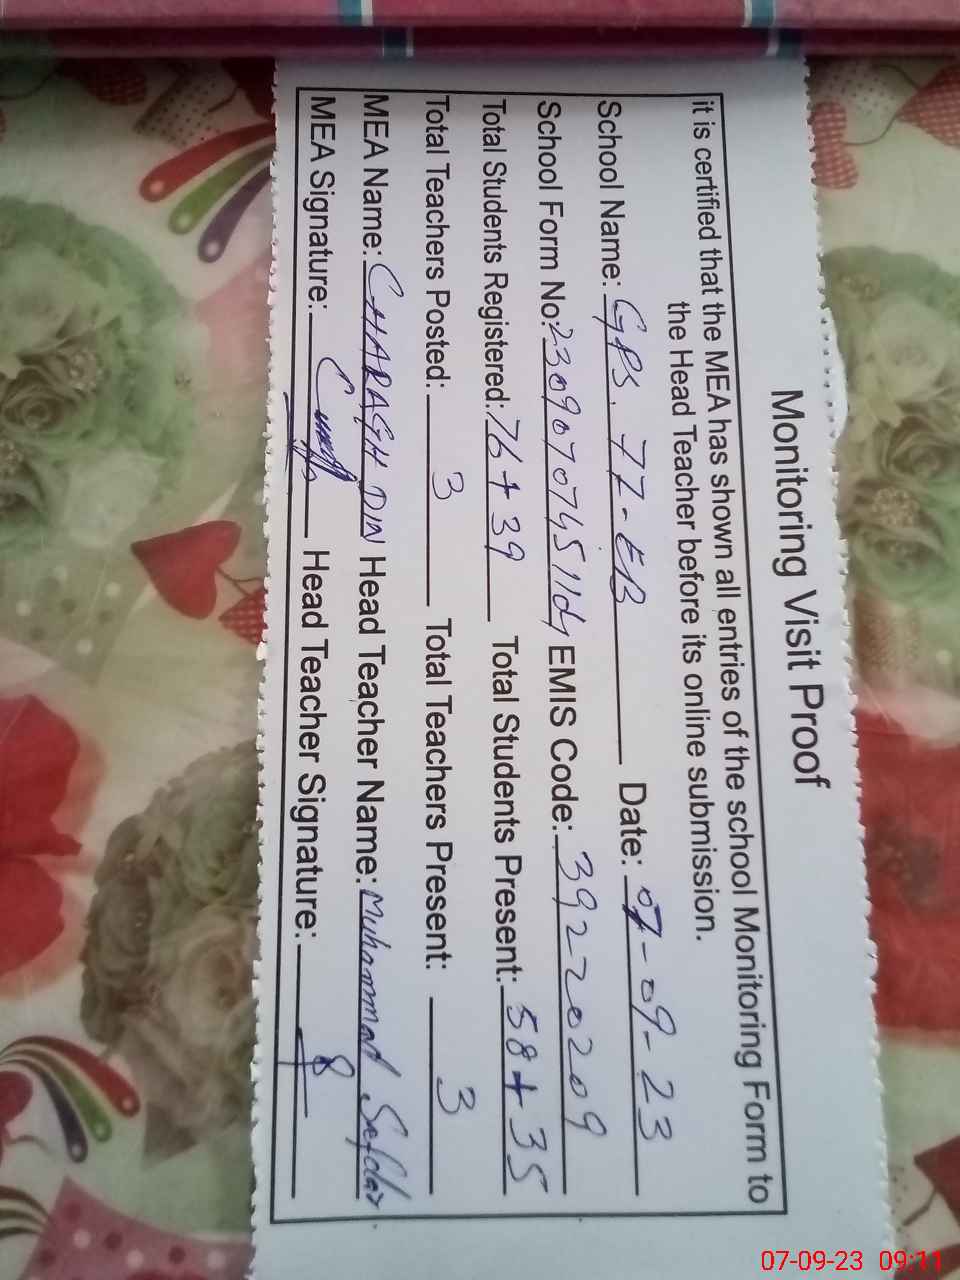 Monitoring Visit Proof
it is certified that the MEA has shown all entries of the school Monitoring Form to
the Head Teacher before its online submission.
School Name: GPS. 77-EB Date: 07-09-23
School Form No: EMIS Code: 39220209
Total Students Registered: 76+39 Total Students Present: 58+35
Total Teachers Posted: 3 Total Teachers Present: 3
MEA Name: CHARAGH DIN Head Teacher Name: Muhammad Safdar
MEA Signature: Head Teacher Signature:
07-09-23 09:11